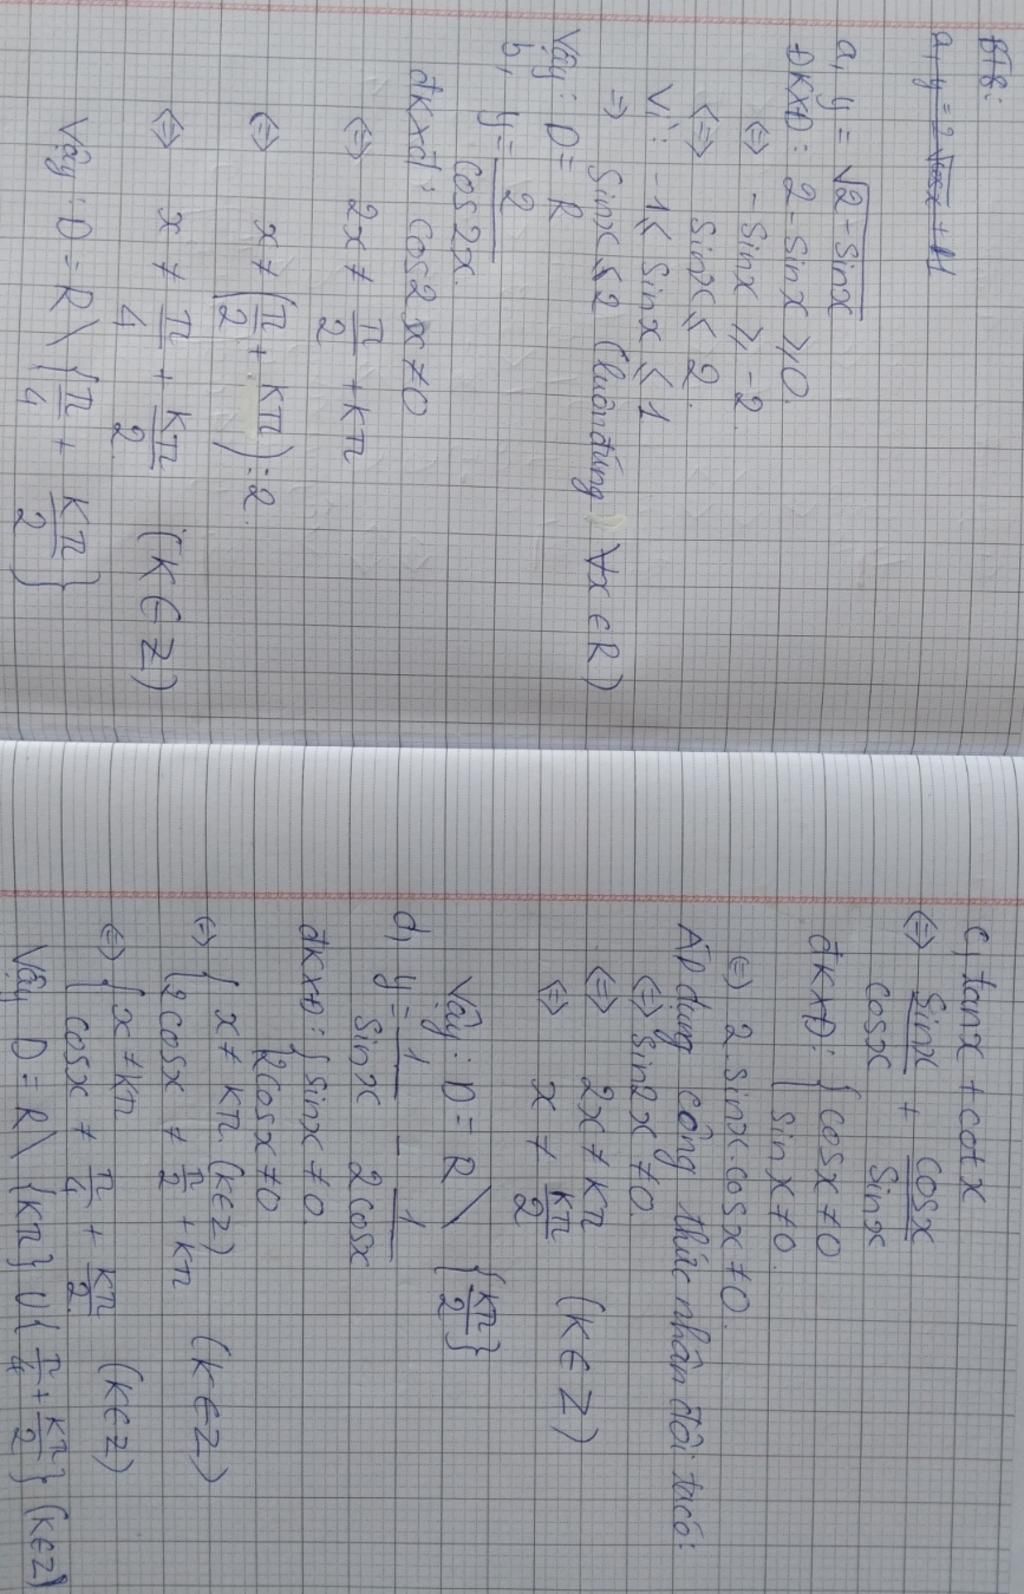 BT8:
a, y = 2√cosx + 4
a, y = √2 - Sinx
ĐKXĐ: 2 - Sinx ⩾ 0.
⇔ - Sinx ⩾ -2
⇔ Sinx ⩽ 2.
Vì: -1 ⩽ Sinx ⩽ 1
⇒ Sinx ⩽ 2 (luôn đúng ∀x ∈ R)
Vậy: D = R
b, y = 2/cos2x.
đkxđ: cos2x ≠ 0
⇔ 2x ≠ π/2 + kπ
⇔ x ≠ (π/2 + kπ) : 2.
⇔ x ≠ π/4 + kπ/2 (K ∈ Z)
Vậy: D = R \ {π/4 + kπ/2}
c, tanx + cotx
⇔ Sinx/cosx + cosx/Sinx
đkxđ: { cosx ≠ 0
Sinx ≠ 0.
⇔ 2 Sinx.cosx ≠ 0.
Áp dụng công thức nhân đôi ta có:
⇔ Sin2x ≠ 0.
⇔ 2x ≠ kπ
⇔ x ≠ kπ/2 (K ∈ Z)
Vậy: D = R \ {kπ/2}
d, y = 1/Sinx - 1/2cosx
đkxđ: { Sinx ≠ 0.
2cosx ≠ 0
⇔ { x ≠ kπ (k∈Z)
2cosx ≠ π/2 + kπ (K ∈ Z)
⇔ { x ≠ kπ
cosx ≠ π/4 + kπ/2. (k∈Z)
Vậy D = R \ {kπ} U {π/4 + kπ/2} (k∈Z)